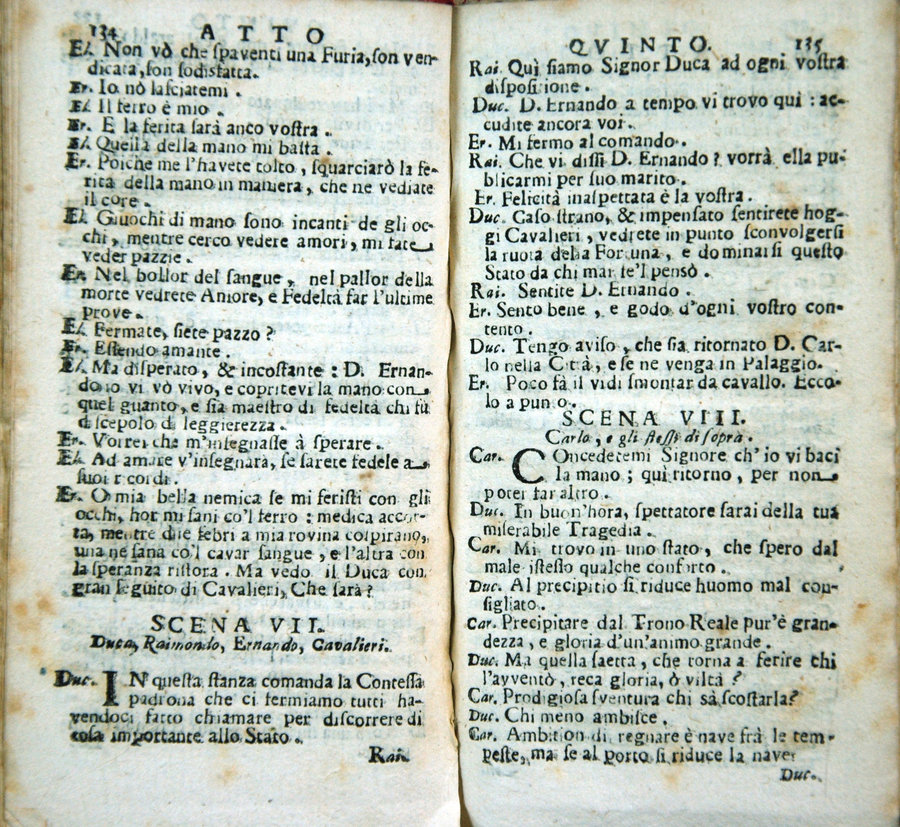 134 ATTO
El. Non vò che ſpaventi una Furia, ſon ven-
dicata, ſon ſodisfatta.
Er. Io nò laſciatemi.
El. Il ferro è mio.
Er. E la ferita ſarà anco voſtra.
El. Quella della mano mi baſta.
Er. Poiche me l'havete tolto, ſquarciarò la fe-
rita della mano in maniera, che ne vediate
il core.
El. Giuochi di mano ſono incanti de gli oc-
chi, mentre cerco vedere amori, mi fate
veder pazzie.
Er. Nel bollor del ſangue, nel pallor della
morte vedrete Amore, e Fedeltà far l'ultime
prove.
El. Fermate, ſiete pazzo?
Er. Eſſendo amante.
El. Ma diſperato, & incoſtante: D. Ernan-
do io vi vò vivo, e copritevi la mano con
quel guanto, e ſia maeſtro di fedeltà chi fù
diſcepolo di leggierezza.
Er. Vorrei che m'inſegnaſſe à ſperare.
El. Ad amare v'inſegnarà, ſe ſarete fedele a
ſuoi ricordi.
Er. O mia bella nemica ſe mi feriſti con gli
occhi, hor mi ſani co'l ferro: medica accor-
ta, mentre due febri a mia rovina coſpirano,
una ne ſana co'l cavar ſangue, e l'altra con
la ſperanza riſtora. Ma vedo il Duca con
gran ſeguito di Cavalieri, Che ſarà?
SCENA VII.
Duca, Raimondo, Ernando, Cavalieri.
Duc. IN queſta ſtanza comanda la Conteſſa
padrona che ci fermiamo tutti ha-
vendoci fatto chiamare per diſcorrere di
coſa importante allo Stato.
Rai.
QVINTO. 135
Rai. Quì ſiamo Signor Duca ad ogni voſtra
diſpoſizione.
Duc. D. Ernando a tempo vi trovo qui: ac-
cudite ancora voi.
Er. Mi fermo al comando.
Rai. Che vi diſſi D. Ernando? vorrà ella pu-
blicarmi per ſuo marito.
Er. Felicità inaſpettata è la voſtra.
Duc. Caſo ſtrano, & impenſato ſentirete hog-
gi Cavalieri, vedrete in punto ſconvolgerſi
la ruota della Fortuna, e dominarſi queſto
Stato da chi mai ſe'l pensò.
Rai. Sentite D. Ernando.
Er. Sento bene, e godo d'ogni voſtro con-
tento.
Duc. Tengo aviſo, che ſia ritornato D. Car-
lo nella Città, e ſe ne venga in Palaggio.
Er. Poco fà il vidi ſmontar da cavallo. Ecco-
lo a punto.
SCENA VIII.
Carlo, e gli ſteſſi di ſopra.
Car. COncedetemi Signore ch'io vi baci
la mano; qui ritorno, per non
poter far altro.
Duc. In buon'hora, ſpettatore ſarai della tua
miſerabile Tragedia.
Car. Mi trovo in uno ſtato, che ſpero dal
male iſteſſo qualche conforto.
Duc. Al precipitio ſi riduce huomo mal con-
ſigliato.
Car. Precipitare dal Trono Reale pur'è gran-
dezza, e gloria d'un'animo grande.
Duc. Ma quella ſaetta, che torna a ferire chi
l'avventò, reca gloria, ò viltà?
Car. Prodigioſa ſventura chi sà ſcoſtarla?
Duc. Chi meno ambiſce.
Car. Ambition di regnare è nave frà le tem-
peſte, ma ſe al porto ſi riduce la nave?
Duc.